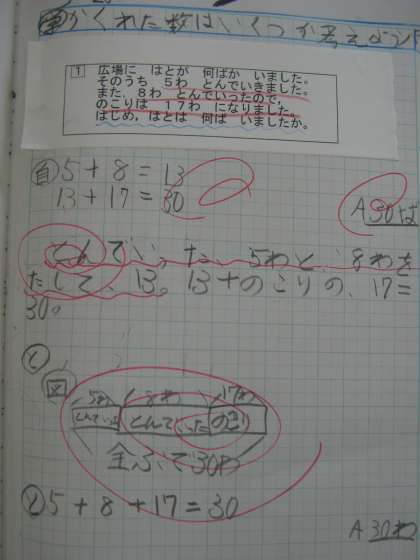 かくれた数はいくつか考えよう
1 広場に はとが 何ばか いました。
そのうち 5わ とんでいきました。
また、8わ とんでいったので、
のこりは 17わ になりました。
はじめ、はとは 何ば いましたか。
自 5+8=13
13+17=30
A 30ば
とんでいった、5わと、8わを
たして、13。13+のこりの、17=
30。
と
図
5わ 8わ 17わ
とんでいった とんでいった のこり
全ぶで30わ
と 5+8+17=30
A 30わ